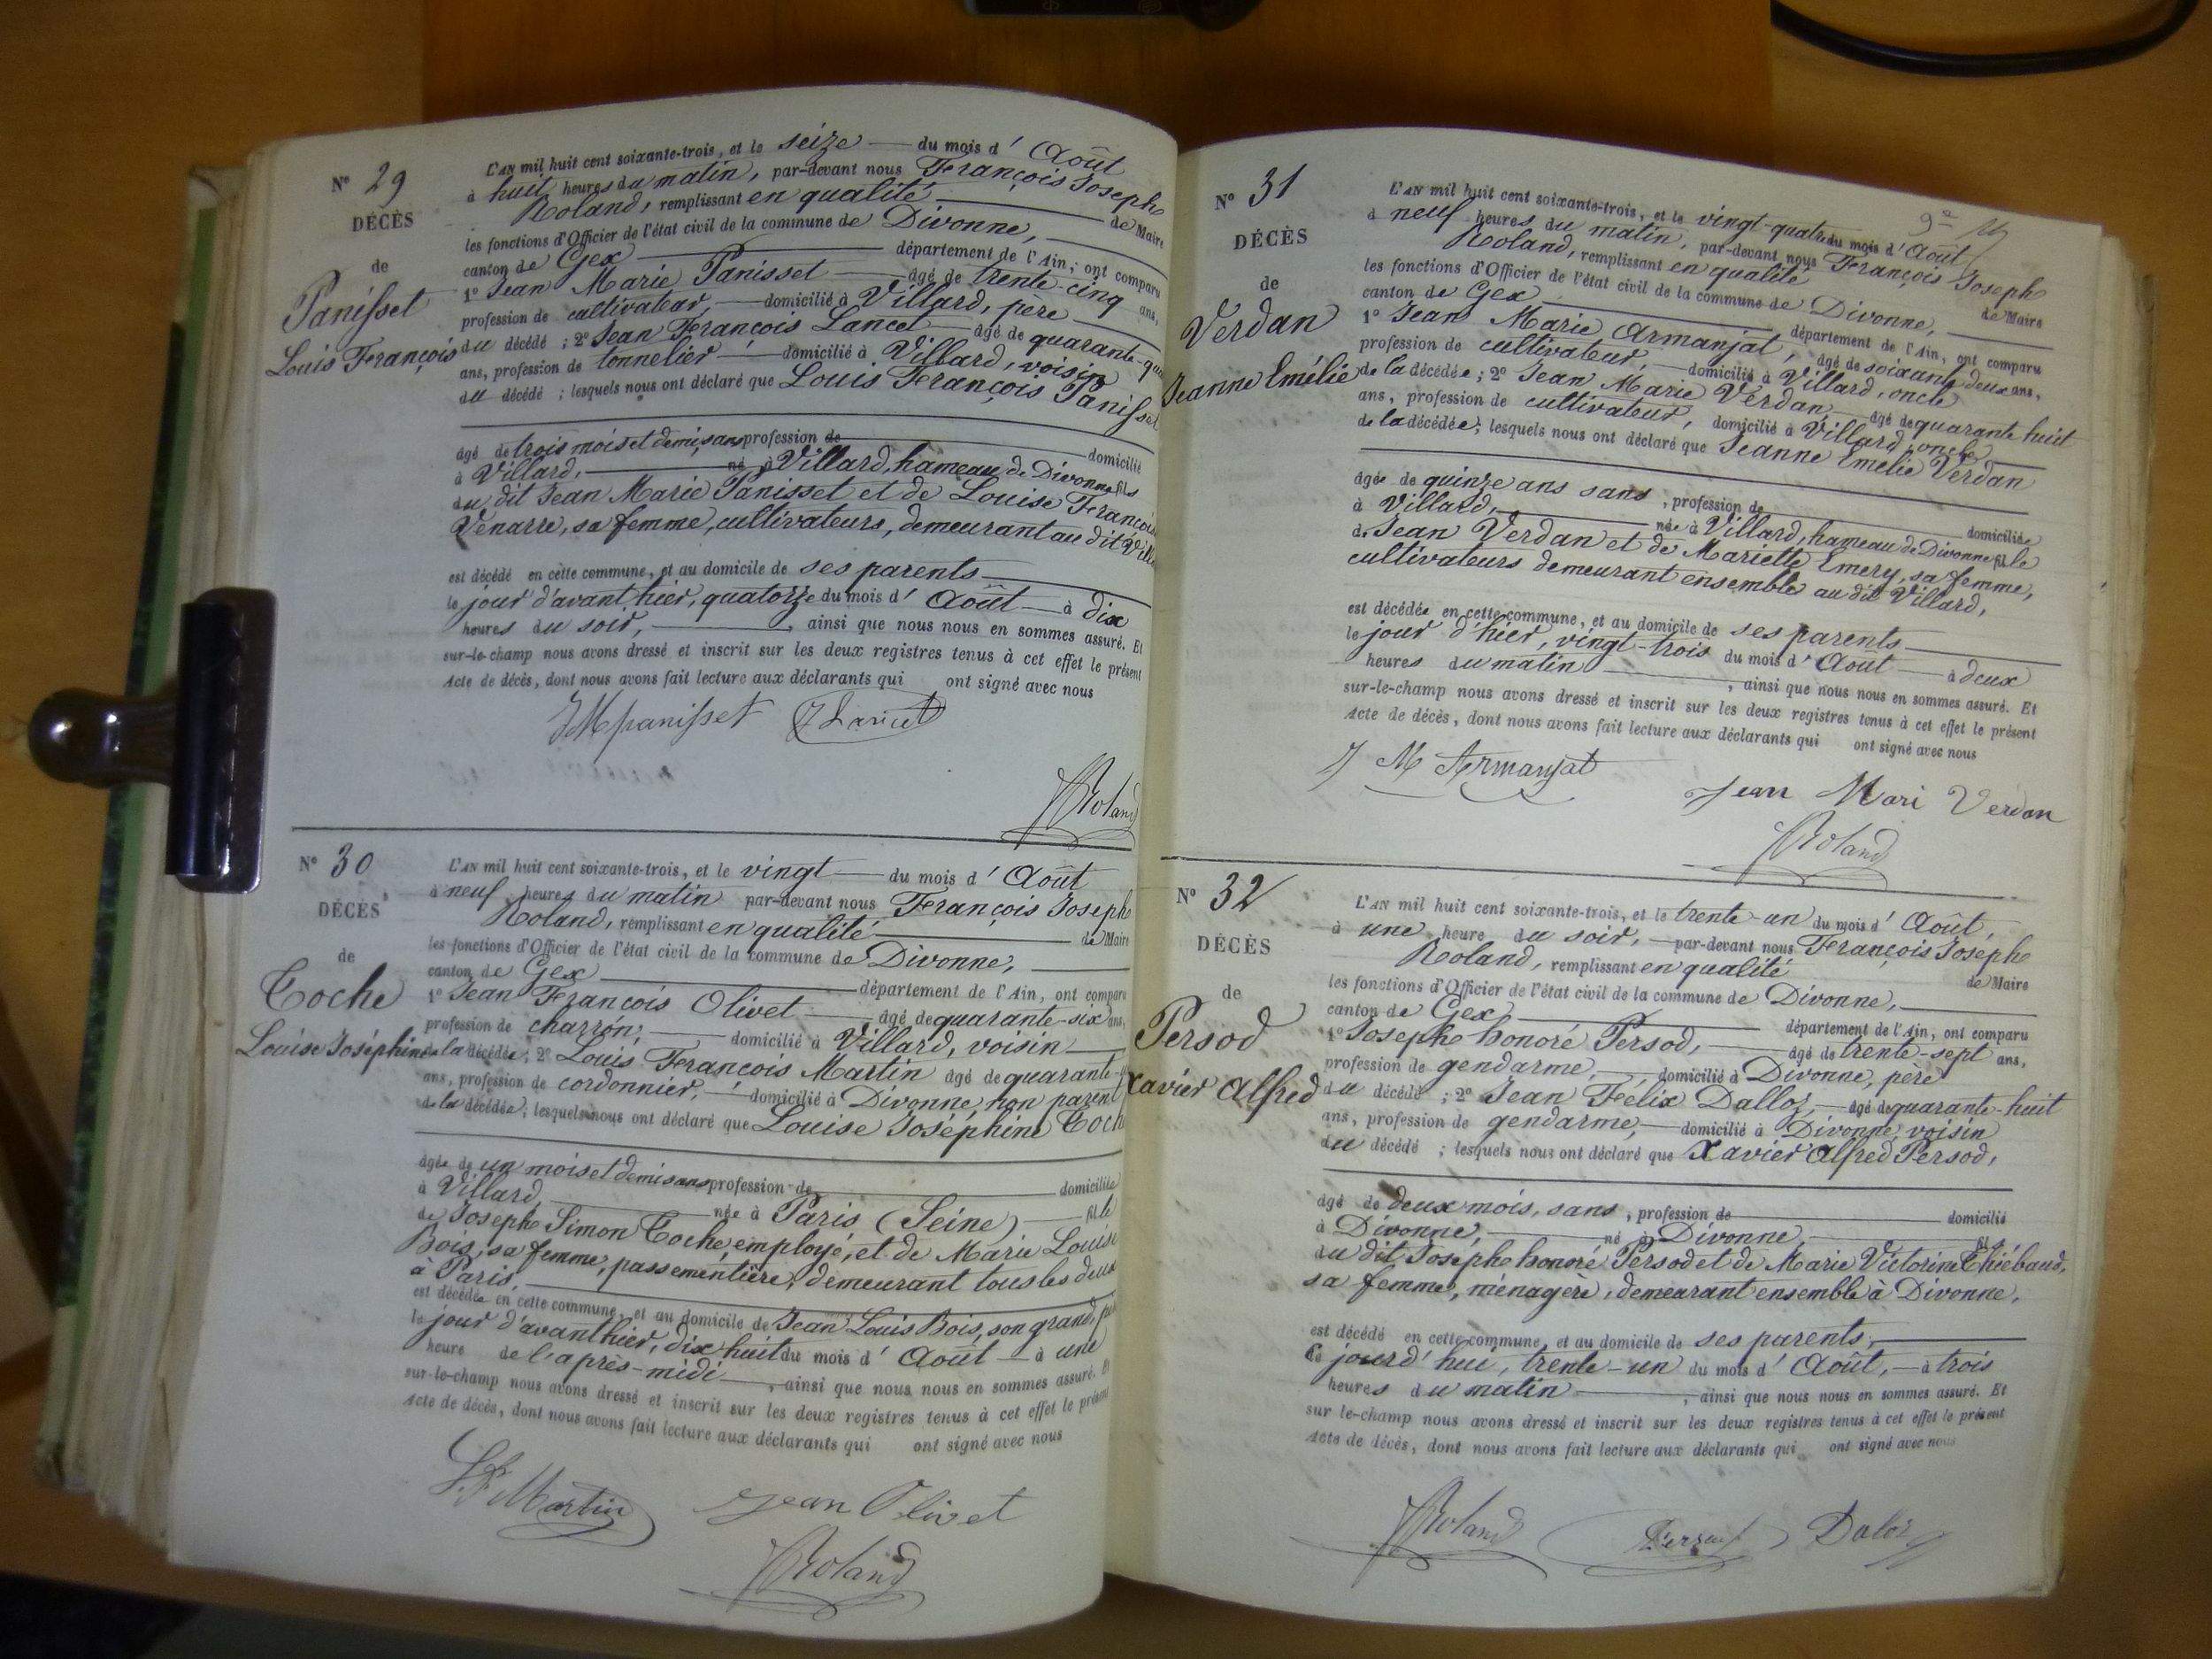 Nº 29
DÉCÈS
de
Panisset
Louis François
L'AN mil huit cent soixante-trois, et le seize du mois d' Août
à huit heures du matin, par-devant nous François Joseph
Roland, remplissant en qualité de Maire
les fonctions d'Officier de l'état civil de la commune de Divonne,
canton de Gex département de l'Ain; ont comparu
1º Jean Marie Panisset âgé de trente-cinq ans,
profession de cultivateur, domicilié à Villard, père
du décédé ; 2º Jean François Lancet âgé de quarante-
ans, profession de tonnelier domicilié à Villard, voisin
du décédé ; lesquels nous ont déclaré que Louis François Panisset
âgé de trois mois et demi, sans profession de domicilié
à Villard, né à Villard, hameau de Divonne fils
du dit Jean Marie Panisset et de Louise
Venarre, sa femme, cultivateurs, demeurant au dit
est décédé en cette commune, et au domicile de ses parents
le jour d'avant hier, quatorze du mois d' Août à dix
heures du soir, , ainsi que nous nous en sommes assuré. Et
sur-le-champ nous avons dressé et inscrit sur les deux registres tenus à cet effet le présent
Acte de décès, dont nous avons fait lecture aux déclarants qui ont signé avec nous
JMpanisset J Lancet
Roland
Nº 30
DÉCÈS
de
Coche
Louise Joséphine
L'AN mil huit cent soixante-trois, et le vingt du mois d' Août
à neuf heures du matin par-devant nous François Joseph
Roland, remplissant en qualité de Maire
les fonctions d'Officier de l'état civil de la commune de Divonne,
canton de Gex département de l'Ain, ont comparu
1º Jean François Olivet âgé de quarante-six ans,
profession de charron, domicilié à Villard, voisin
de la décédée ; 2º Louis François Martin âgé de quarante-
ans, profession de cordonnier, domicilié à Divonne, non parent
de la décédée ; lesquels nous ont déclaré que Louise Joséphine Coche
âgée de un mois et demi sans profession de domiciliée
à Villard, née à Paris (Seine) fille
de Joseph Simon Coche, employé, et de Marie Louise
Bois, sa femme, passementière, demeurant tous les deux
à Paris,
est décédée en cette commune, et au domicile de Jean Louis Bois, son grand,
le jour d'avant hier, dix huit du mois d' Août à une
heure de l'après-midi , ainsi que nous nous en sommes assuré. Et
sur-le-champ nous avons dressé et inscrit sur les deux registres tenus à cet effet le présent
Acte de décès, dont nous avons fait lecture aux déclarants qui ont signé avec nous
L.F. Martin Jean Olivet
Roland
Nº 31
DÉCÈS
de
Verdan
Jeanne Emélie
L'AN mil huit cent soixante-trois, et le vingt-quatre du mois d' Août
à neuf heures du matin, par-devant nous François Joseph
Roland, remplissant en qualité de Maire
les fonctions d'Officier de l'état civil de la commune de Divonne,
canton de Gex département de l'Ain, ont comparu
1º Jean Marie Armanjat, âgé de soixante deux ans,
profession de cultivateur, domicilié à Villard, oncle
de la décédée ; 2º Jean Marie Verdan âgé de quarante huit
ans, profession de cultivateur, domicilié à Villard, oncle
de la décédée ; lesquels nous ont déclaré que Jeanne Emélie Verdan
âgée de quinze ans sans , profession de domiciliée
à Villard, née à Villard, hameau de Divonne fille
de Jean Verdan et de Mariette Emery, sa femme,
cultivateurs demeurant ensemble au dit Villard,
est décédée en cette commune, et au domicile de ses parents
le jour d'hier, vingt-trois du mois d' Août à deux
heures du matin , ainsi que nous nous en sommes assuré. Et
sur-le-champ nous avons dressé et inscrit sur les deux registres tenus à cet effet le présent
Acte de décès, dont nous avons fait lecture aux déclarants qui ont signé avec nous
J M Armanjat
Jean Mari Verdan
Roland
Nº 32
DÉCÈS
de
Persod
Xavier Alfred
L'AN mil huit cent soixante-trois, et le trente-un du mois d' Août,
à une heure du soir, par-devant nous François Joseph
Roland, remplissant en qualité de Maire
les fonctions d'Officier de l'état civil de la commune de Divonne,
canton de Gex département de l'Ain, ont comparu
1º Joseph honoré Persod, âgé de trente-sept ans,
profession de gendarme, domicilié à Divonne, père
du décédé ; 2º Jean Félix Dalloz, âgé de quarante-huit
ans, profession de gendarme, domicilié à Divonne, voisin
du décédé ; lesquels nous ont déclaré que Xavier Alfred Persod,
âgé de deux mois, sans , profession de domicilié
à Divonne, né à Divonne, fils
du dit Joseph honoré Persod et de Marie Victorine Thiébaud,
sa femme, ménagère, demeurant ensemble à Divonne,
est décédé en cette commune, et au domicile de ses parents,
ce jourd'hui, trente-un du mois d' Août, à trois
heures du matin , ainsi que nous nous en sommes assuré. Et
sur le-champ nous avons dressé et inscrit sur les deux registres tenus à cet effet le présent
Acte de décès, dont nous avons fait lecture aux déclarants qui ont signé avec nous
Roland Persod Daloz